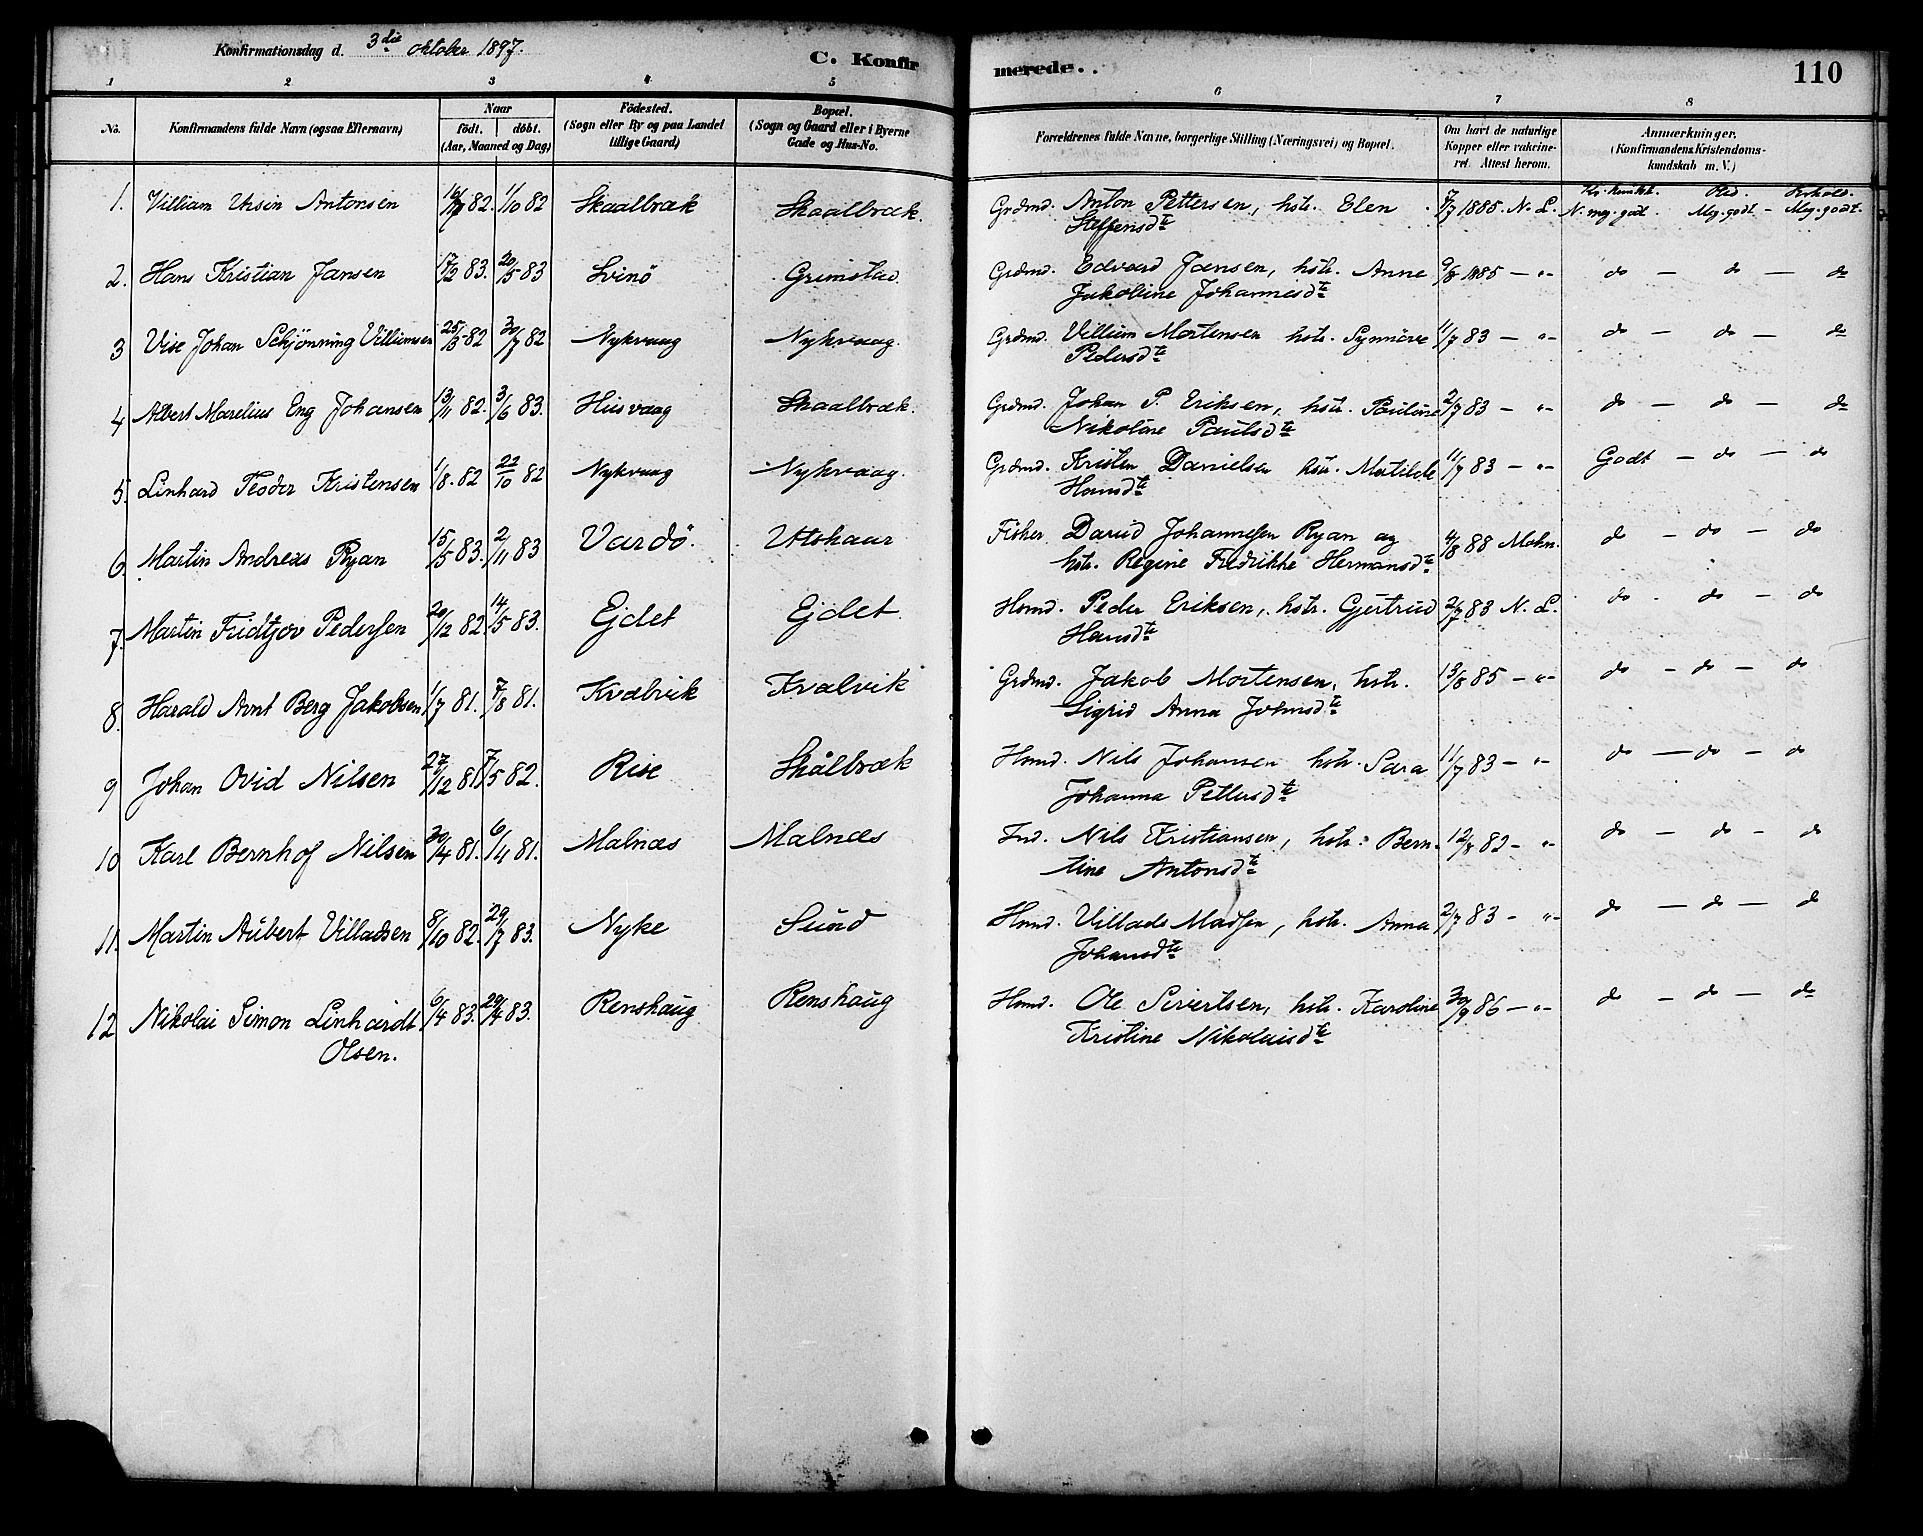 Konfirmationsdag d. 3die oktober 1897.
C. Konfirmerede.
110
1 2 3 4 5 6 7 8
No.
Konfirmandens fulde Navn (ogsaa Efternavn)
Naar
födt. döbt.
(Aar, Maaned og Dag)
Födested.
(Sogn eller By og paa Landet
tillige Gaard)
Bopæl.
(Sogn og Gaard eller i Byerne
Gade og Hus-No.
Forældrenes fulde Navne, borgerlige Stilling (Næringsvei) og Bopæl.
Om havt de naturlige
Kopper eller vakcine-
ret. Attest herom.
Anmærkninger.
(Konfirmandens Kristendoms-
kundskab m. V.)
1. Villiam Ursin Antonsen 82. 1/10 82 Skaalbræk Skaalbræk. Grdmd. Anton Pettersen, hstr. Elen 7/7 1885. N. L. N. meg. godt. Meg. godt - Meg. godt.
Steffensdtr
2. Hans Kristian Jansen 17/2 83. 20/5 83 Svinö Grimstad. Grdmd. Edvard Jansen, hstr. Anne 9/8 1885 — „ — do — do — do
Jakobine Johannesdtr
3 Vise Johan Schjønning Villiamsen 25/3 82 30/7 82 Nykvaag Nykvaag. Grdmd. Villiam Mortensen hstr. Synnöve 11/7 83 — „ — do — do — do
Pedersdtr
4 Albert Marelius Eng Johansen 13/11 82. 3/6 83. Husvaag Skaalbræk. Grdmd. Johan P. Eriksen, hstr. Pauline 2/7 83 — „ — do — do — do
Nikoline Paulsdtr
5. Linhard Teodor Kristensen 1/8. 82 22/10 82 Nykvaag Nykvaag. Grdmd. Kristen Danielsen hstr. Matilde 11/7 83 — „ — Godt — do — do
Hansdtr
6. Martin Andreas Ryan 15/5 83. 2/11 83 Vardö. Utskaar Fisker David Johannesen Ryan og 4/8 88 Mohn. do — do — do
hstr. Regine Fredrikke Hermansdtr
7. Martin Fridtjov Pedersen 20/12 82. 14/5 83. Ejdet Ejdet. Hmd. Peder Eriksen, hstr. Gjertrud 2/7 83 N. L. do - do — do
Hansdtr
8. Harald Arnt Berg Jakobsen 1/7 81. 7/8 81. Kvalvik Kvalvik Grdmd. Jakob Mortensen, hstr. 13/8 85 — „ — do — do — do
Sigrid Anna Johnsdtr
9 Johan Ovid Nilsen 27/12 81 7/5 82. Rise Skålbræk Hmd. Nils Johansen hstr. Sara 11/7 83 — „ — do — do — do
Johanna Pettersdtr
10 Karl Bernhof Nilsen 30/4 81. 6/11 81. Malnæs Malnæs Ind. Nils Kristiansen, hstr. Bern- 12/8 82 — „ — do — do — do
tine Antonsdtr
11. Martin Aubert Villadsen 8/10 82. 29/7 83. Nyke Sund Hmd. Villads Madsen, hstr. Anna 2/7 83 — „ — do — do — do
Johansdtr
12 Nikolai Simon Linhardt 6/4 83. 29/4 83. Renshaug Renshaug Hmd. Ole Sivertsen, hstr. Karoline 30/9 86 — „ — do — do — do
Olsen. Kristine Nikolaisdtr